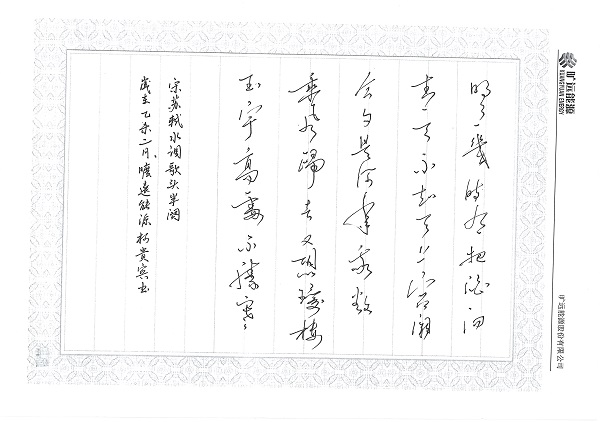 旷远能源
KUANGYUAN ENERGY
旷远能源股份有限公司
明月幾時有把酒问
青天不知天上宫阙
今夕是何年我欲
乘风歸去又恐瓊楼
玉宇高處不勝寒
宋苏轼水调歌头半阕
歲在乙未二月曠遠能源貴宾书